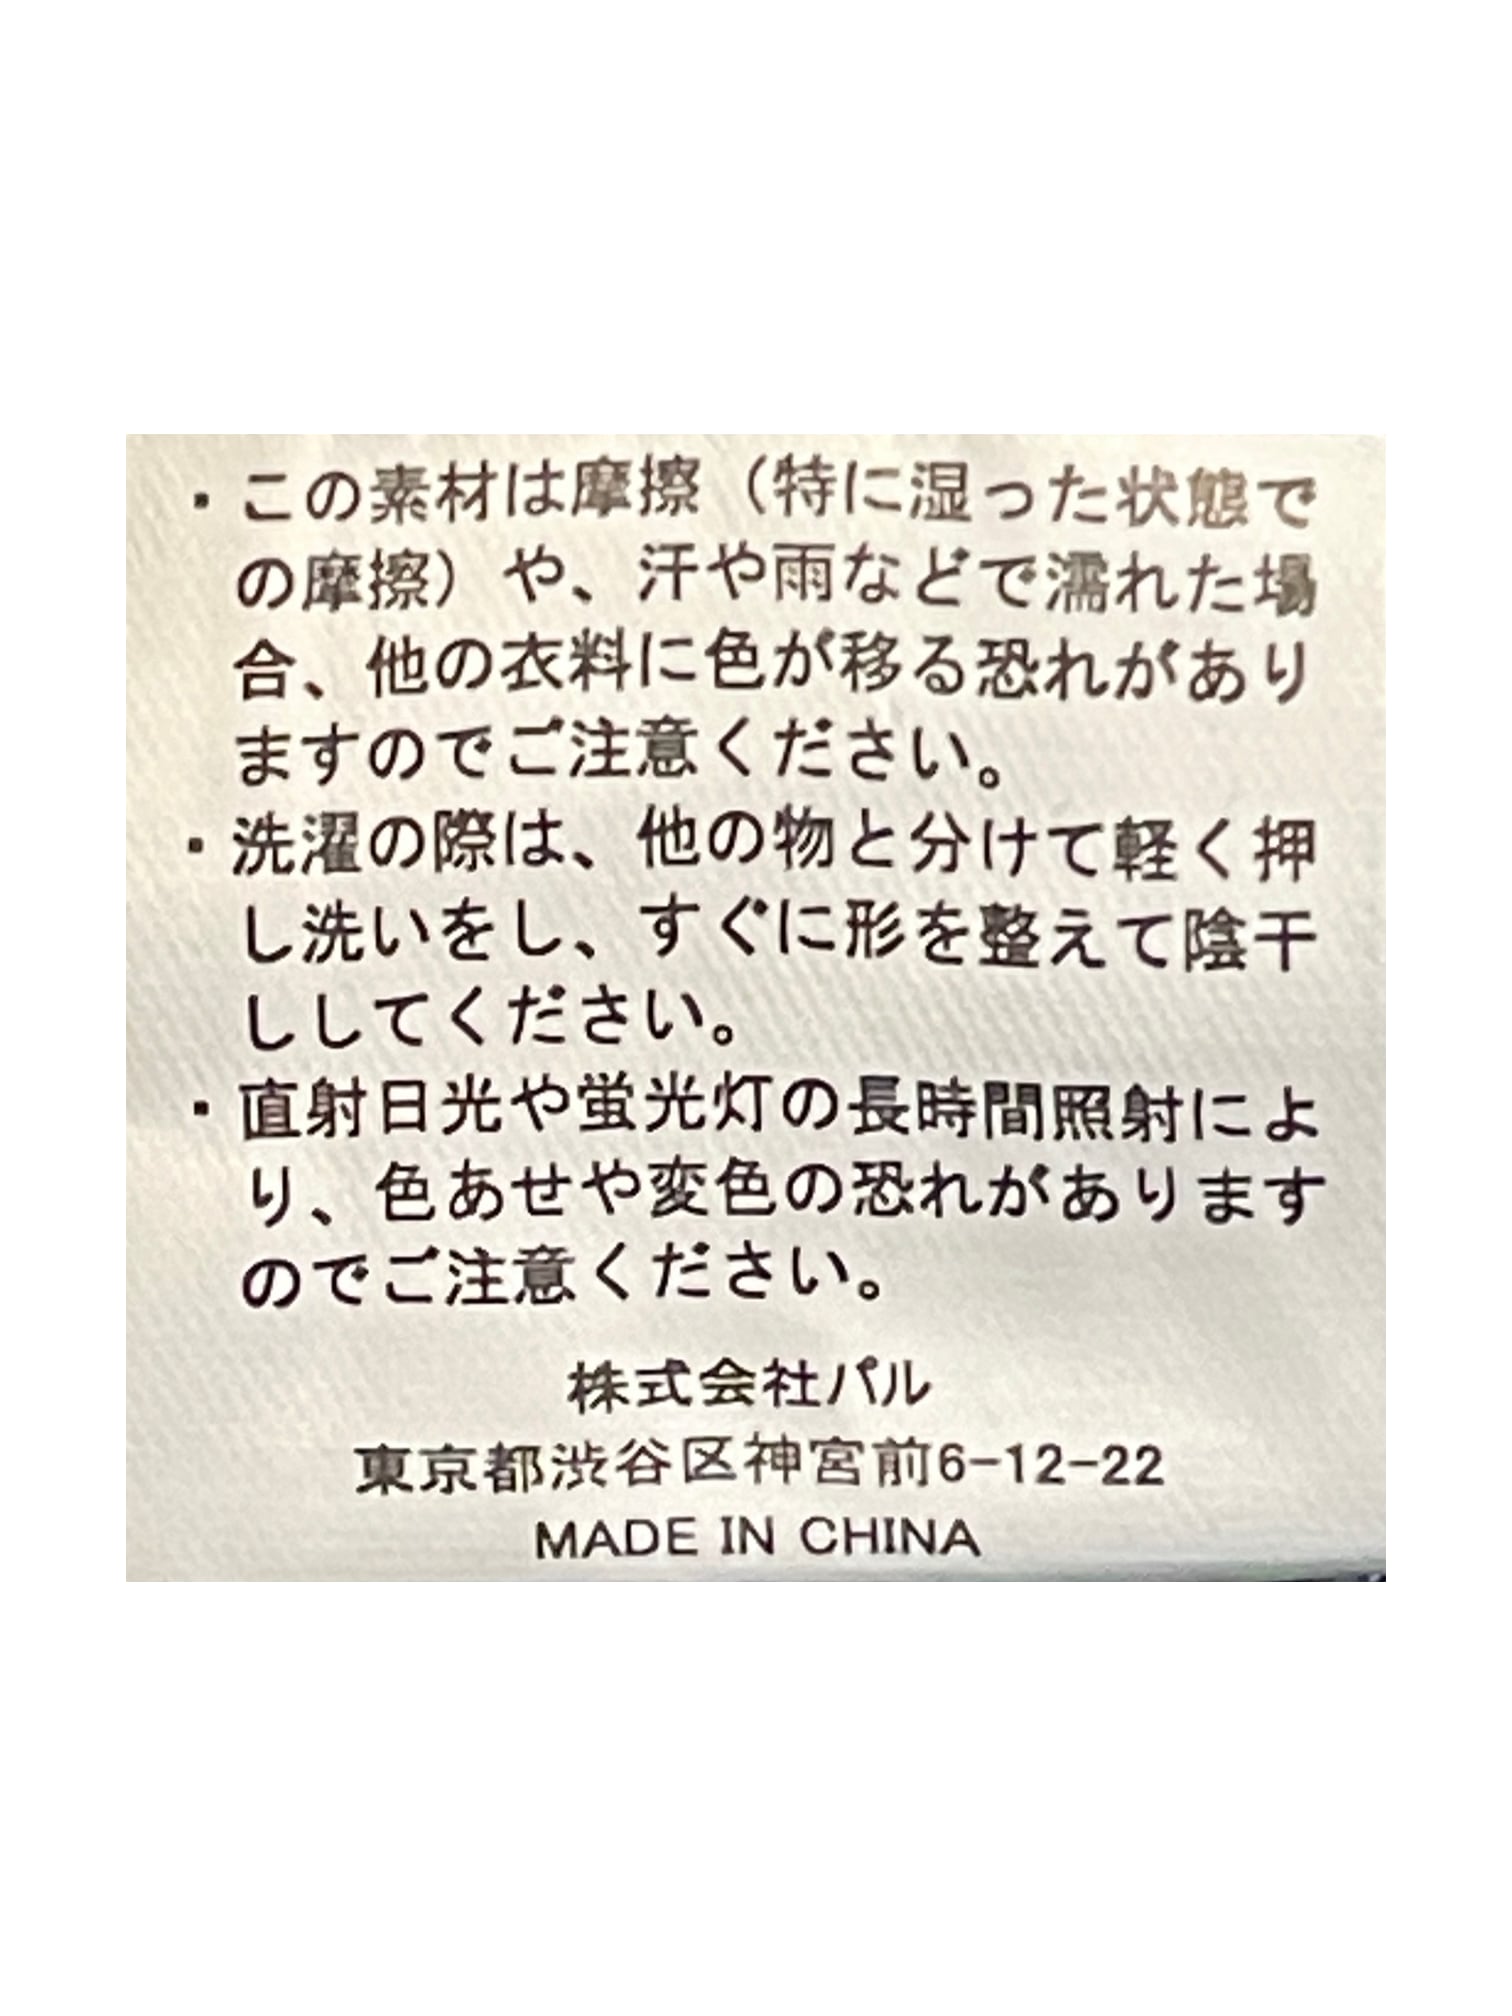 ・この素材は摩擦（特に湿った状態で
の摩擦）や、汗や雨などで濡れた場
合、他の衣料に色が移る恐れがあり
ますのでご注意ください。
・洗濯の際は、他の物と分けて軽く押
し洗いをし、すぐに形を整えて陰干
ししてください。
・直射日光や蛍光灯の長時間照射によ
り、色あせや変色の恐れがあります
のでご注意ください。
株式会社パル
東京都渋谷区神宮前6-12-22
MADE IN CHINA